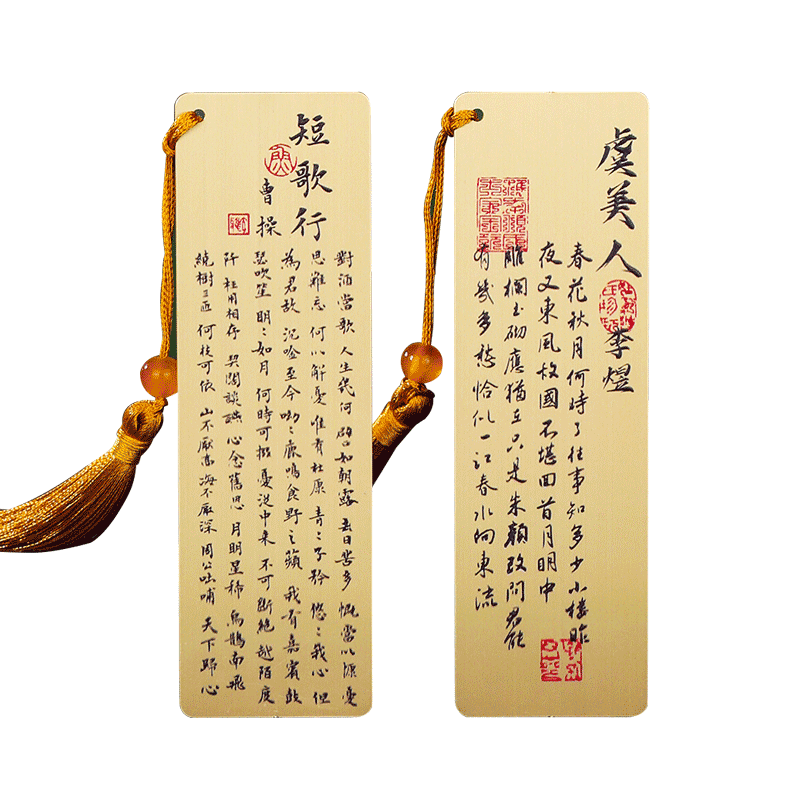 短歌行
曹操
對酒當歌 人生幾何 譬如朝露 去日苦多 慨當以慷憂
思難忘 何以解憂 惟有杜康 青〻子衿 悠〻我心 但
為君故 沉吟至今 呦〻鹿鳴 食野之蘋 我有嘉賓鼓
瑟吹笙 明〻如月 何時可掇 憂從中來 不可斷絕 越陌度
阡 枉用相存 契闊談讌 心念舊恩 月明星稀 烏鵲南飛
繞樹三匝 何枝可依 山不厭高 海不厭深 周公吐哺 天下歸心
虞美人
李煜
春花秋月何時了往事知多少小樓昨
夜又東風故國不堪回首月明中
雕欄玉砌應猶在只是朱顏改問君能
有幾多愁恰似一江春水向東流